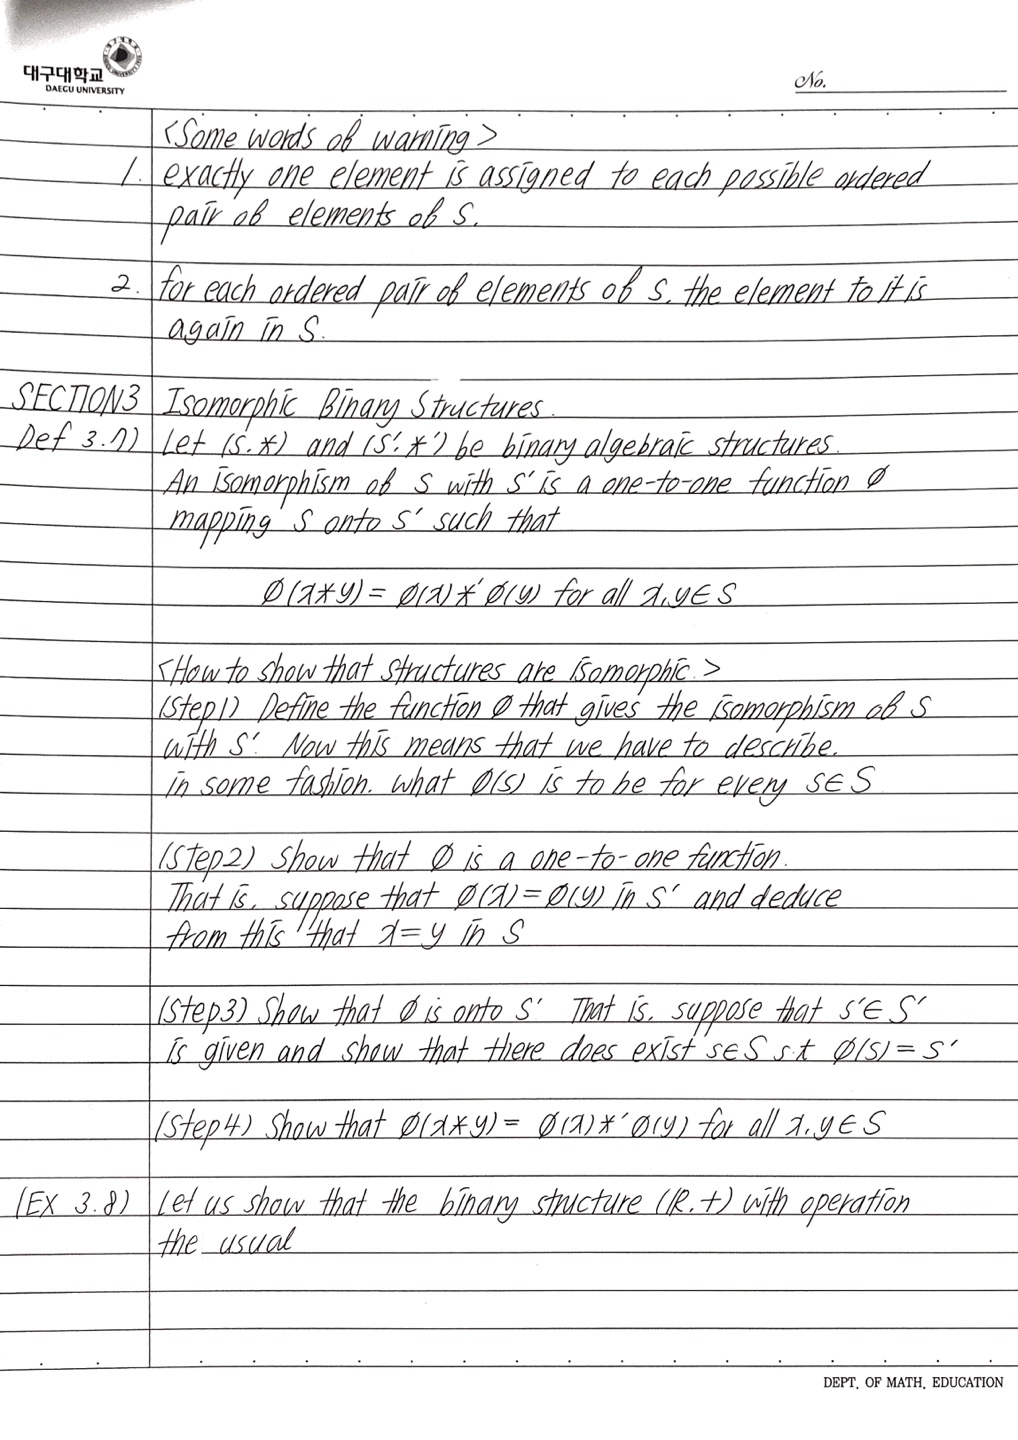 대구대학교
DAEGU UNIVERSITY
No.
<Some words of warning>
1. exactly one element is assigned to each possible ordered
pair of elements of S.
2. for each ordered pair of elements of S, the element to it is
again in S.
SECTION3 Isomorphic Binary Structures.
Def 3.7) Let (S.*) and (S'.*') be binary algebraic structures.
An isomorphism of S with S' is a one-to-one function ∅
mapping S onto S' such that
∅(x*y) = ∅(x) *' ∅(y) for all x,y∈S
<How to show that structures are isomorphic.>
(Step1) Define the function ∅ that gives the isomorphism of S
with S'. Now this means that we have to describe.
in some fashion. what ∅(s) is to be for every s∈S
(Step2) Show that ∅ is a one-to-one function.
That is, suppose that ∅(x)=∅(y) in S' and deduce
from this that x=y in S
(Step3) Show that ∅ is onto S' That is, suppose that s'∈S'
is given and show that there does exist s∈S s.t ∅(s)=s'
(Step4) Show that ∅(x*y) = ∅(x)*'∅(y) for all x,y∈S
(EX 3.8) Let us show that the binary structure (R.+) with operation
the usual
DEPT. OF MATH. EDUCATION